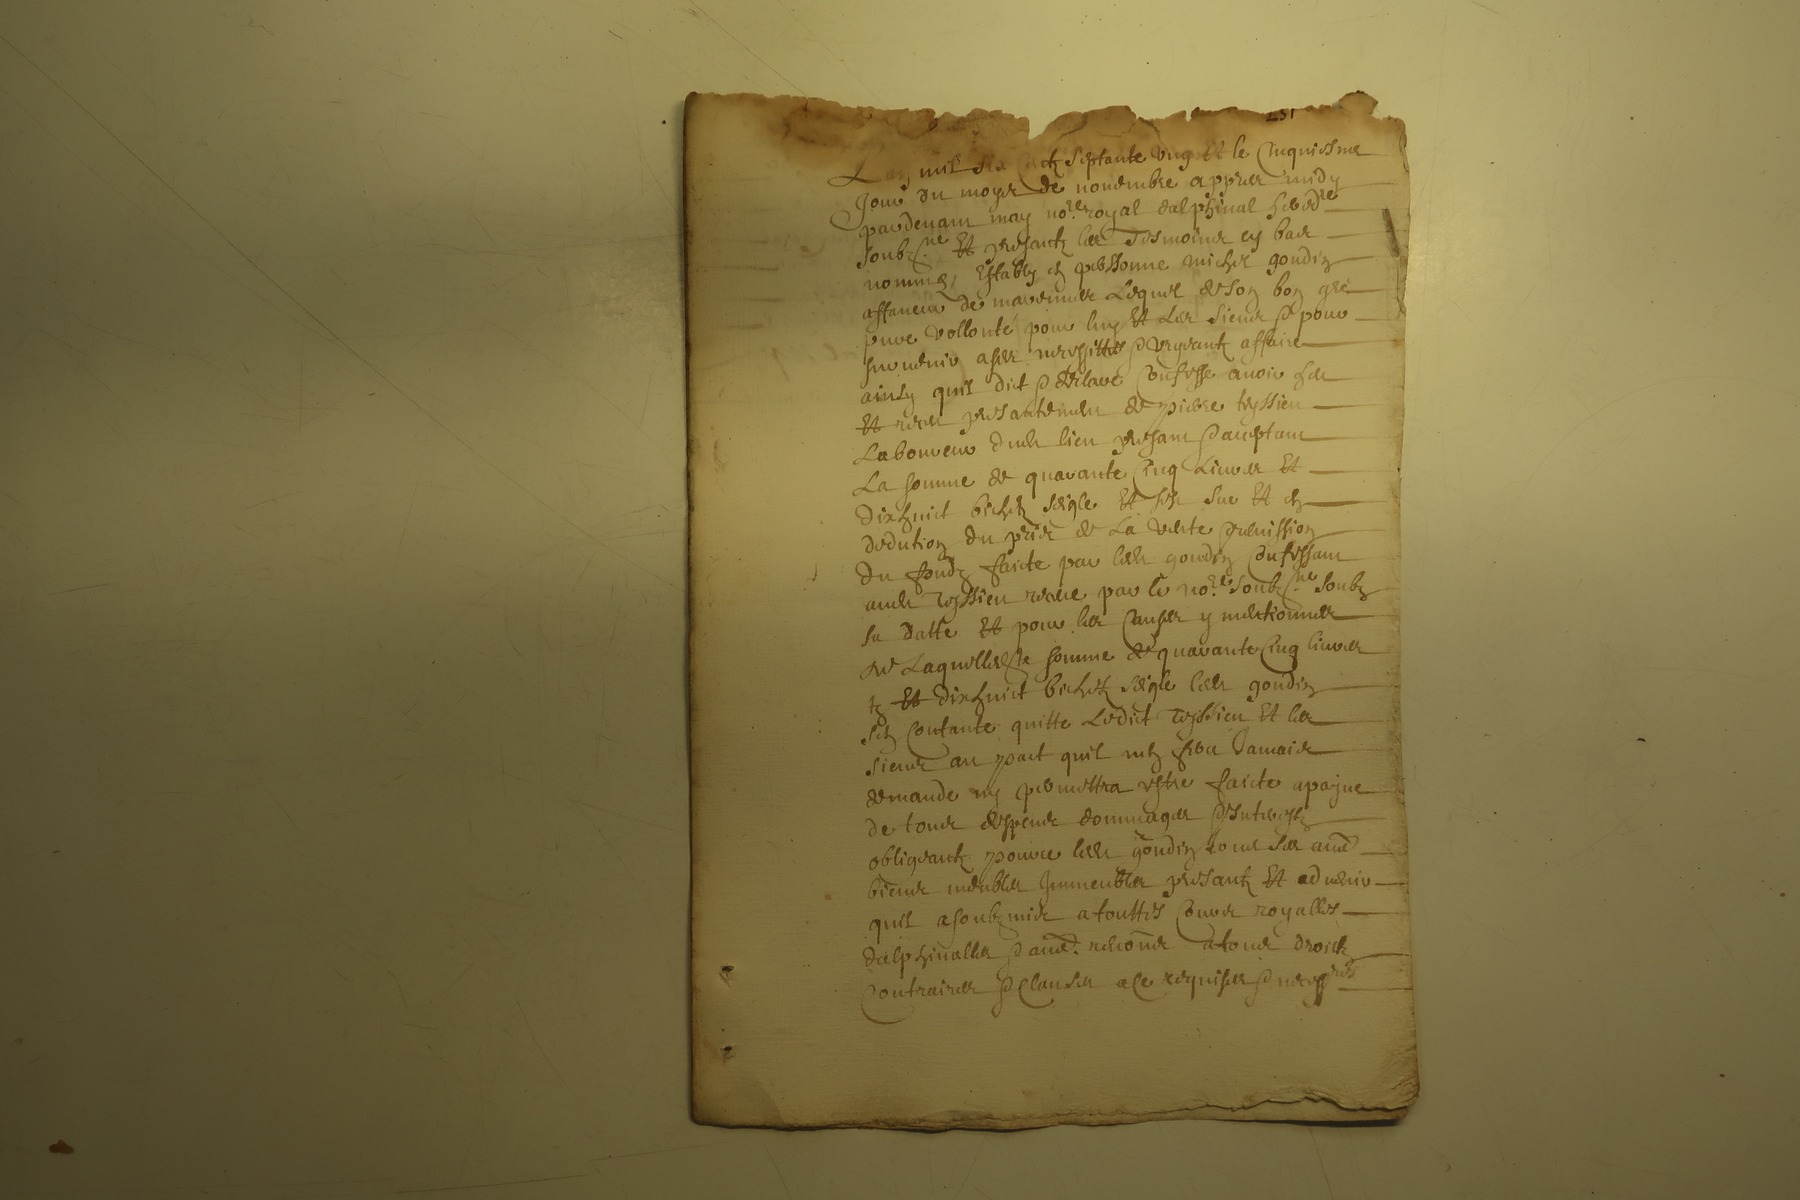 231
Lan mil six centz septante ung et le cinquiesme
Jour du moys de novembre appres midy
pardevant moy no.re royal dalphinal hered.re
soubz.né et presantz les tesmoins en bas
nommés, estably en personne michel goudin
affaneur de lequel de son bon gré
pure vollonté pour luy et les siens & pour
survenir a ses necessittes & urgeantz affaires
ainsy quil dict & declare confesse avoir heu
et receu presantement de pierre teyssieu
Laboureur dudt lieu presant & aceptant
La somme de quarante cinq livres et
dixhuict bichetz seigle et ce sur et en
dedution du pris de la vante & remission
du fondz faicte par ledt goudin confessant
audt Teyssieu receue par le no.re soubz.né soubz
sa datte et pour les causes y mentionnes
de Laquelle somme de quarante cinq livres
tz et dixhuict bichetz seigle ledt goudin
sen contante quitte Ledict Teyssieu et les
siens au pact quil nen fera Jamais
demande ny permettra estre faicte a payne
de tous despens dommages & Interestz
obligeantz pource ledt goudin tous ses aud
biens meubles Immeubles presantz et advenir
quil a soubzmis a touttes cours royalles
dalphinalles & aud. renonce a tous droictz
contraires & clauses a ce requises & necess.res